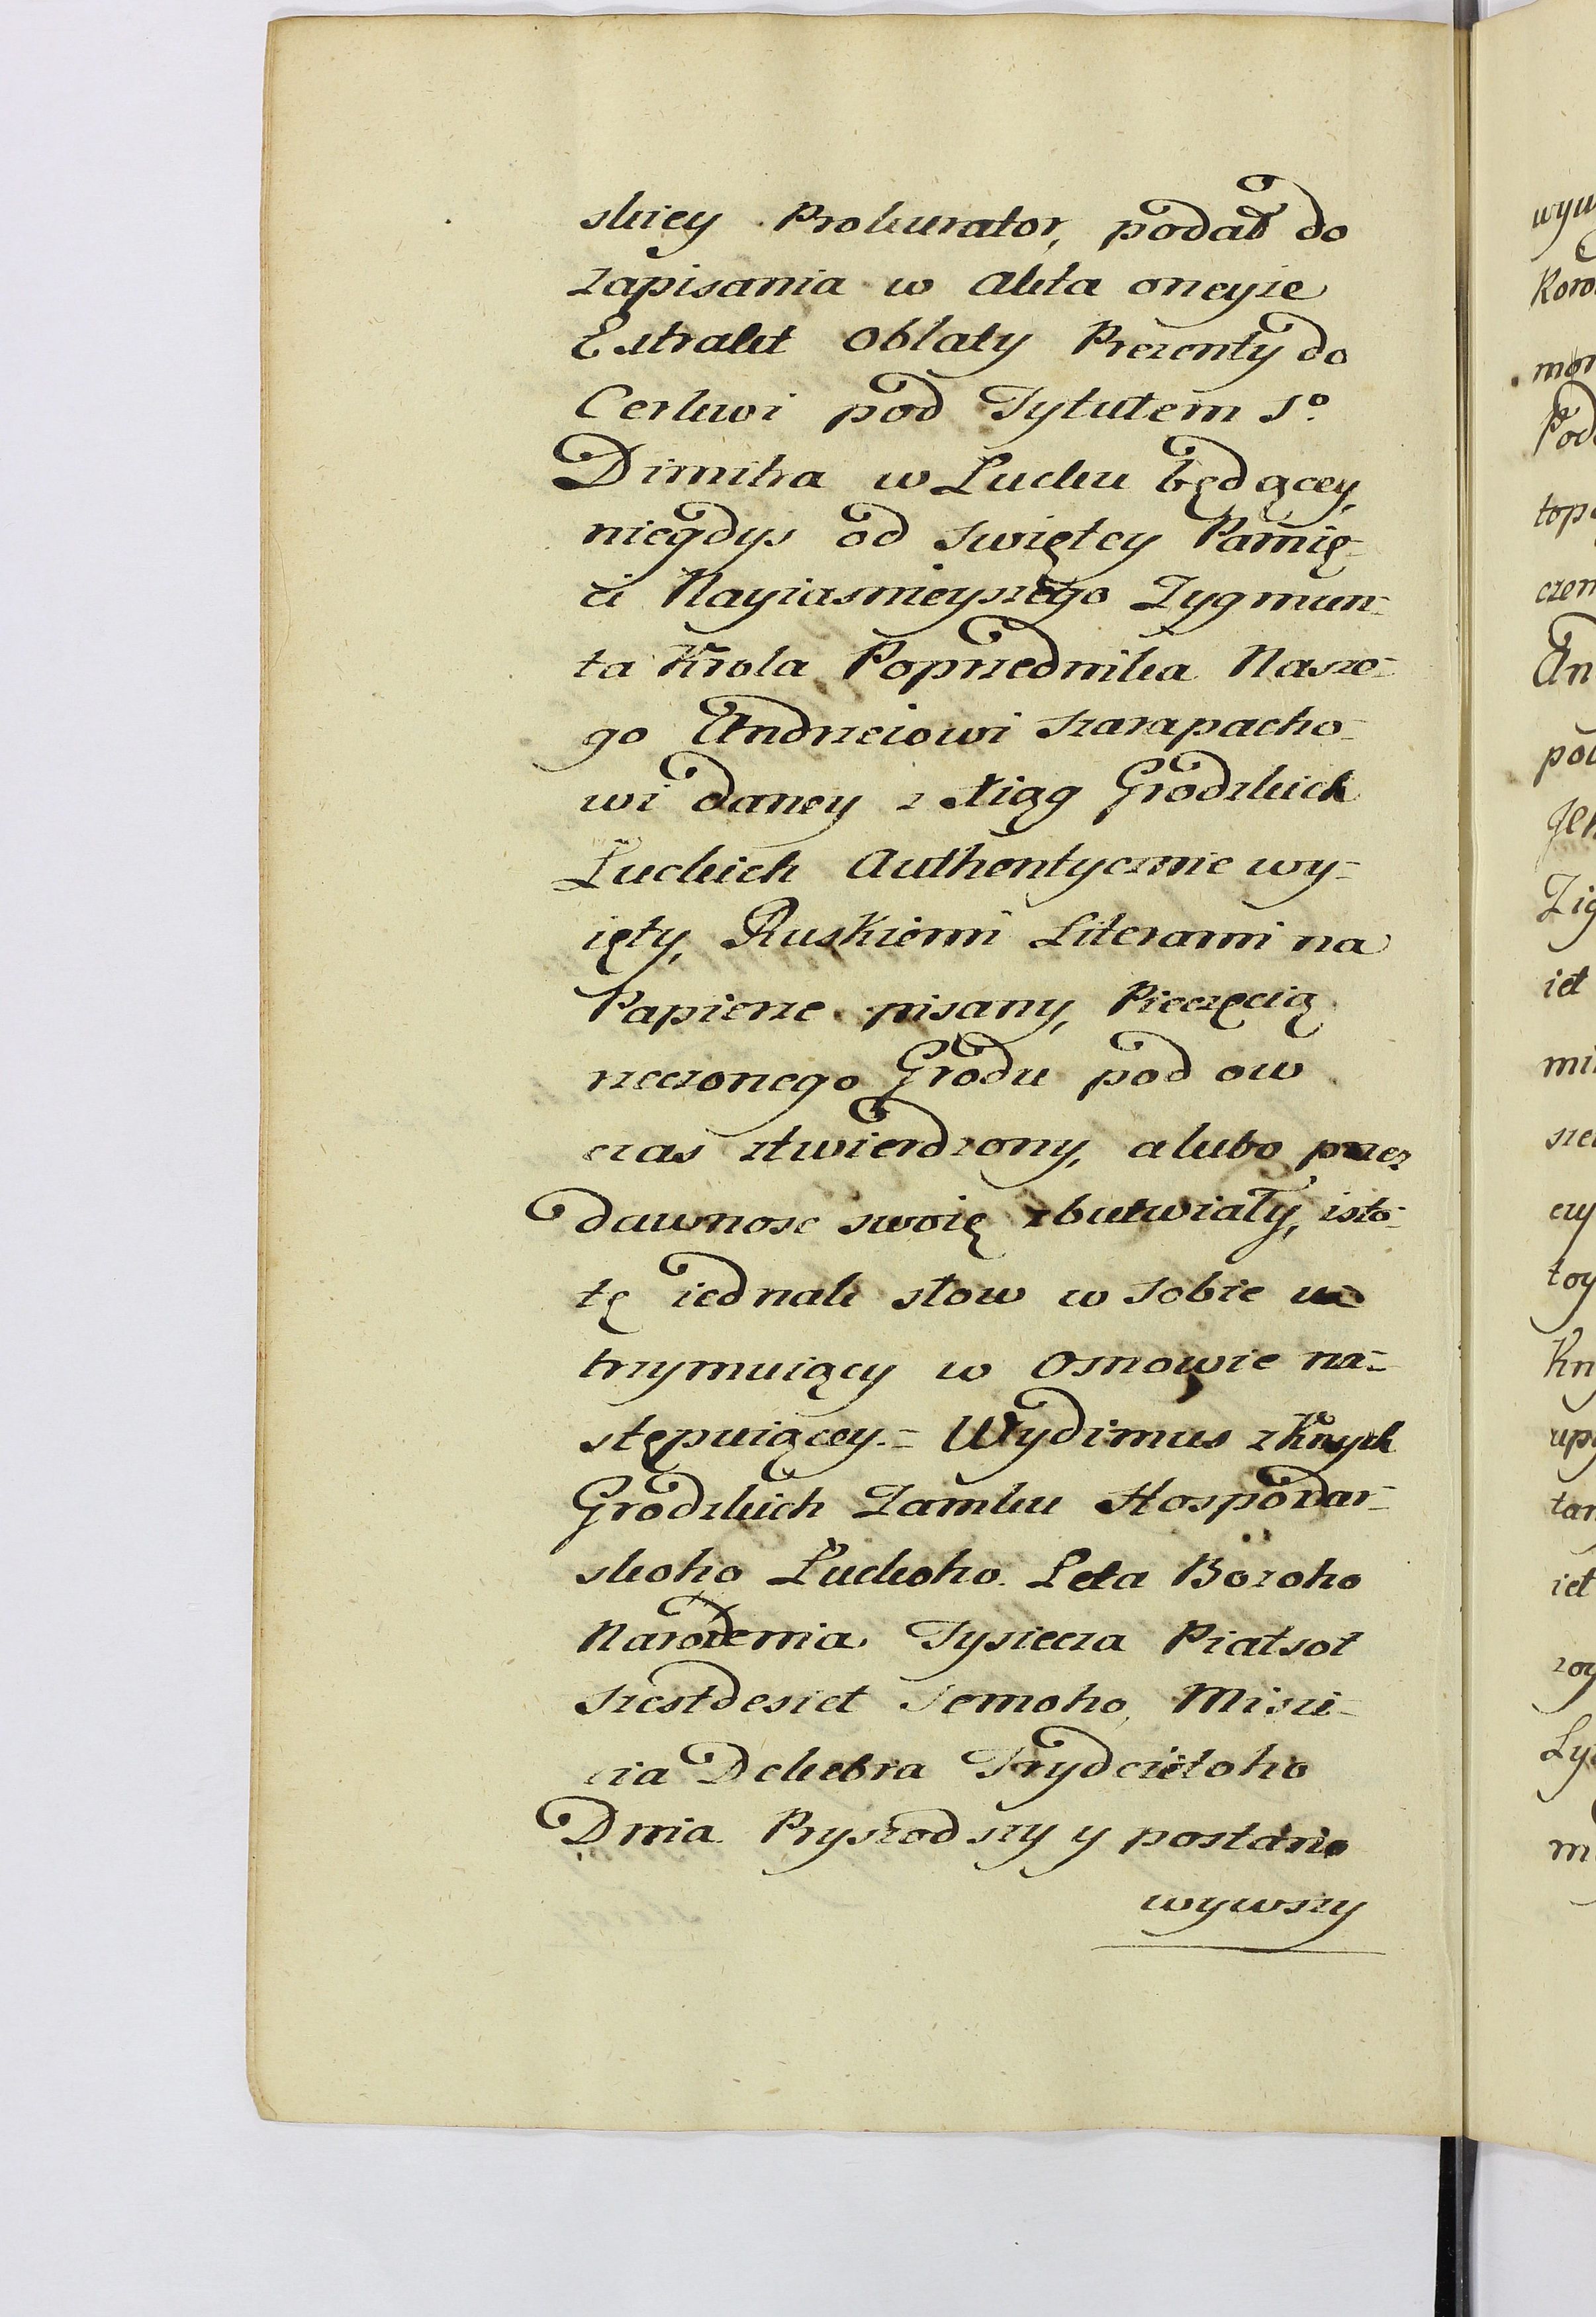 skiey Prokurator, podał do
zapisania w Akta oneyże
Extrakt Oblaty Prezenty do
Cerkwi pod Tytułem Sº
Dimitra w Łucku będącey,
niegdys od swiętey Pamię-
ci Nayiasnieyszego Zygmun-
ta Krola Poprzednika Nasze-
go Andrzeiowi Szarapacho-
wi daney z Xiąg Grodzkich
Łuckich Authentycznie wy-
ięty, Ruskiemi Literami na
Papierze pisany, Pieczęcią
rzeczonego Grodu pod ow
czas ztwierdzony, a lubo przez
dawnosc swoię zbutwiały, isto-
tę iednak słow w sobie u
trzymuiący w Osnowie na-
stępuiącey.= Wydimus z Knyh
Grodzkich Zamku Hospodar-
skoho Łuckoho. Leta Bozoho
Narodzenia Tysiecza Piatsot
szestdesiet semoho, Misie-
cia Dekebra Trydcietoho
Dnia Pryszodszy y postano
wywszy
wyw
Koro
mon
Pod
top
czem
An
pol
Zig
iet
mi
sze
czy
toy
Kn
upo
tar
iet
zoy
Ly
m